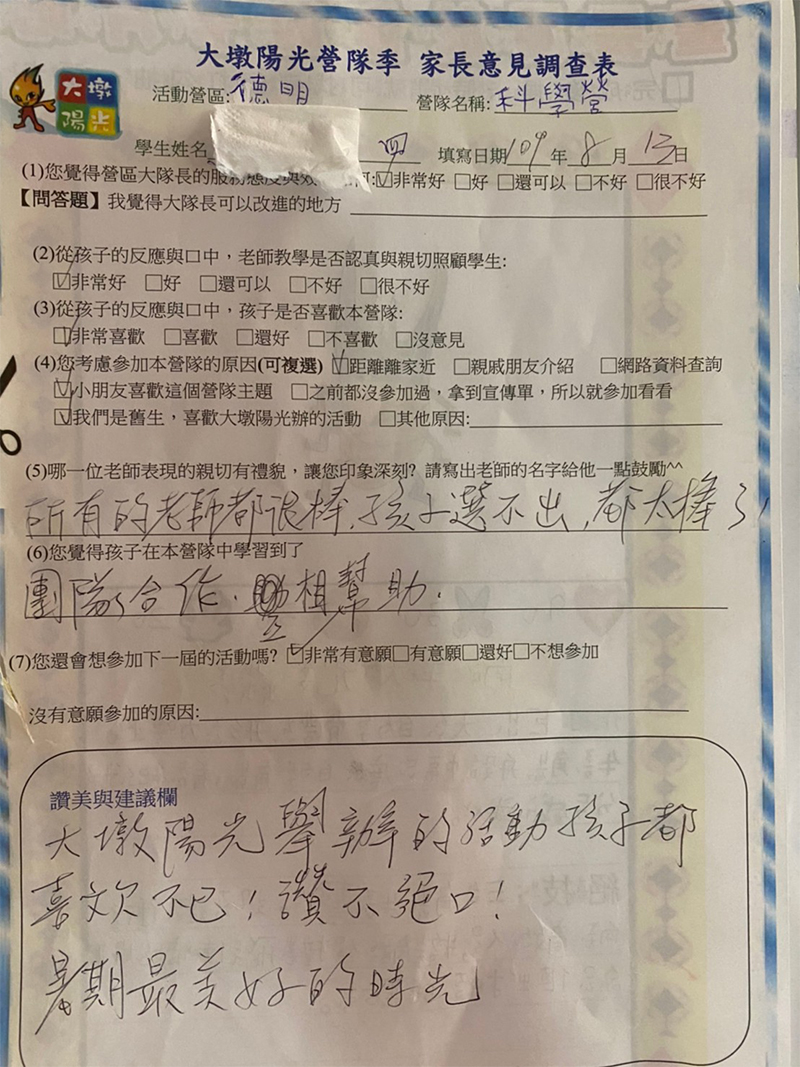 大墩陽光營隊季 家長意見調查表
大墩
陽光
活動營區:德明 營隊名稱:科學營
學生姓名 四 填寫日期109年8月13日
(1)您覺得營區大隊長的服務態度與效 何:☑非常好 □好 □還可以 □不好 □很不好
【問答題】我覺得大隊長可以改進的地方
(2)從孩子的反應與口中，老師教學是否認真與親切照顧學生:
☑非常好 □好 □還可以 □不好 □很不好
(3)從孩子的反應與口中，孩子是否喜歡本營隊:
☑非常喜歡 □喜歡 □還好 □不喜歡 □沒意見
(4)您考慮參加本營隊的原因(可複選) ☑距離離家近 □親戚朋友介紹 □網路資料查詢
☑小朋友喜歡這個營隊主題 □之前都沒參加過，拿到宣傳單，所以就參加看看
☑我們是舊生，喜歡大墩陽光辦的活動 □其他原因:
(5)哪一位老師表現的親切有禮貌，讓您印象深刻? 請寫出老師的名字給他一點鼓勵^^
所有的老師都很棒,孩子選不出,都太棒了!
(6)您覺得孩子在本營隊中學習到了
團隊合作.互相幫助.
(7)您還會想參加下一屆的活動嗎? ☑非常有意願□有意願□還好□不想參加
沒有意願參加的原因:
讚美與建議欄
大墩陽光舉辦的活動孩子都
喜欢不已!讚不絕口!
暑期最美好的時光